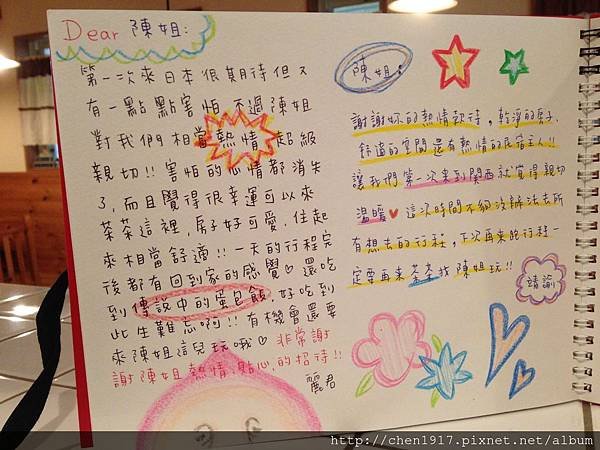 Dear 陳姐:
第一次來日本很期待但又
有一點點害怕,不過陳姐
對我們相當熱情、超級
親切!!害怕的心情都消失
了,而且覺得很幸運可以來
茶茶這裡,房子好可愛,住起
來相當舒適!!一天的行程完
後都有回到家的感覺♡還吃
到傳說中的蛋包飯,好吃到
此生難忘啊!!有機會還要
來陳姐這兒玩哦♡非常謝
謝陳姐熱情、點心的招待!!
麗君
陳姐:
謝謝妳的熱情款待,乾淨的房子、
舒適的空間還有熱情的民宿主人!!
讓我們第一次來到關西就覺得親切
溫暖♥這次時間不夠沒辦法去所
有想去的行程,下次再來能行程一
定要再來茶茶找陳姐玩!!
靖諭
http://chen1917.pixnet.net/album